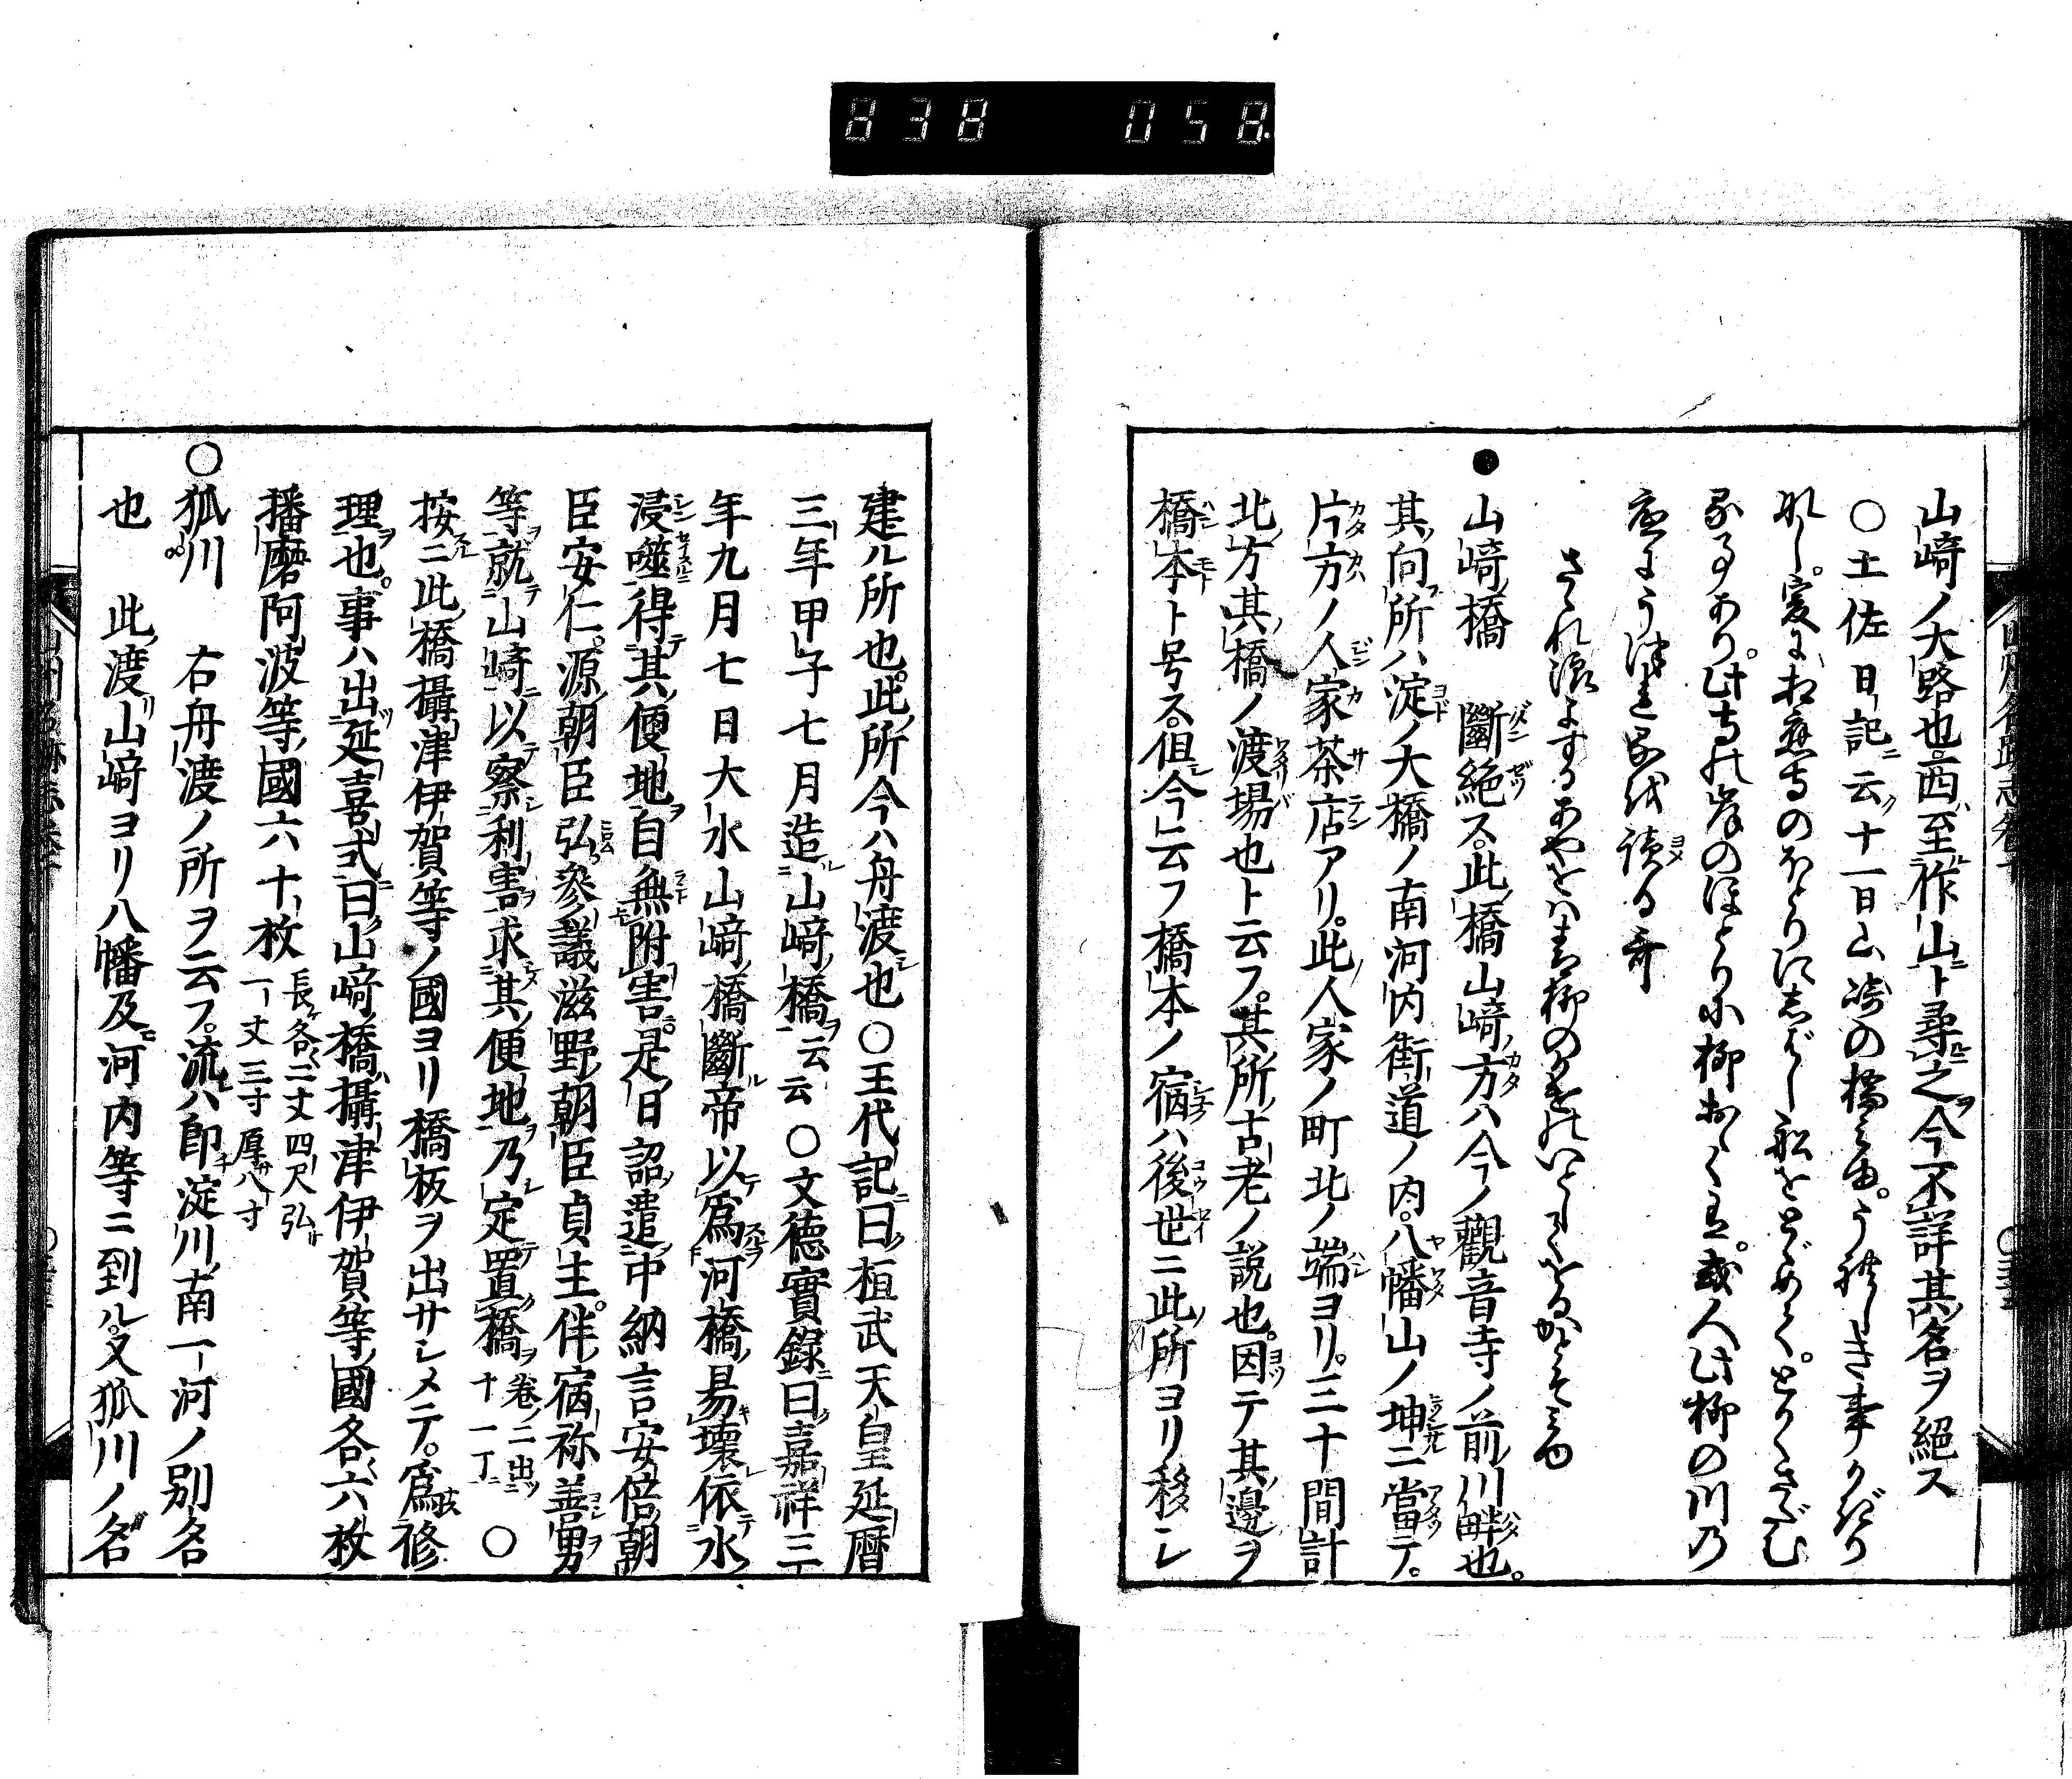 838 058
山﨑ノ大路也西ハ至作山ト尋之今不詳其名ヲ絶ス
○土佐日記云十一日山崎の橋みゆうれしき事かぎり
なし爰にお相應寺のほとりにしばし船をとゞめてとかくさだむ
る事あり此寺の岸のほとりに柳おほくあり或人此柳の川乃
底にうつれるを読る哥
さゝれ浪よするあやをはあを柳のかけのいとしておるかとそみゆ
●山﨑橋 斷絶ス此橋山﨑方ハ今ノ觀音寺ノ前川畔也
其向所ハ淀ノ大橋ノ南河内街道ノ内八幡山ノ坤ニ當テ
片方ノ人家茶店アリ此人家ノ町北ノ端ヨリ三十間計
北方其橋ノ渡場也ト云フ其所古老ノ説也因テ其邊ヲ
橋本ト号ス但今云フ橋本ノ宿ハ後世ニ此所ヨリ移シ
建ル所也此所今ハ舟渡也○王代記曰桓武天皇延暦
三年甲子七月造山﨑橋云云○文德實錄曰嘉祥三
年九月七日大水山﨑橋斷帝以爲河橋易壞依水
浸噬得其便地自無附害是日詔遣中納言安倍朝
臣安仁源朝臣弘參議滋野朝臣貞主伴宿祢善男
等就山﨑以察利害求其便地乃定置橋 卷ノ二出ツ十一丁 ○
按ニ此橋攝津伊賀等ノ國ヨリ橋板ヲ出サシメテ爲修
理也事ハ出延喜式曰山﨑橋攝津伊賀等國各六枚
播磨阿波等國六十枚 長各二丈四尺弘一丈三寸厚八寸
○狐川 右舟渡ノ所ヲ云フ流ハ即淀川南一河ノ別名
也 此渡山﨑ヨリ八幡及河内等ニ到ル又狐川ノ名